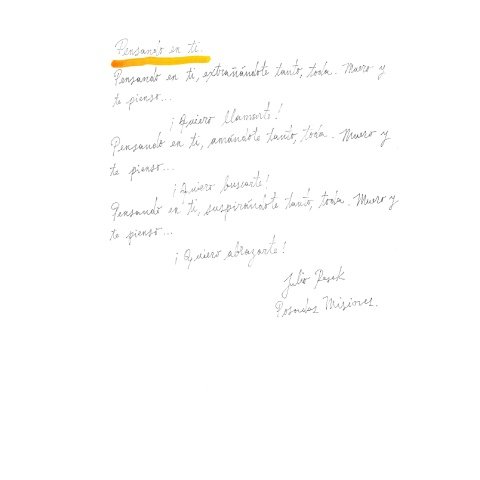 Pensando en ti
Pensando en ti, extrañándote tanto, toda. Muero y
te pienso...
¡Quiero llamarte!
Pensando en ti, amándote tanto, toda. Muero y
te pienso...
¡Quiero buscarte!
Pensando en ti, suspirándote tanto, toda. Muero y
te pienso...
¡Quiero abrazarte!
Julio
Posadas Misiones.